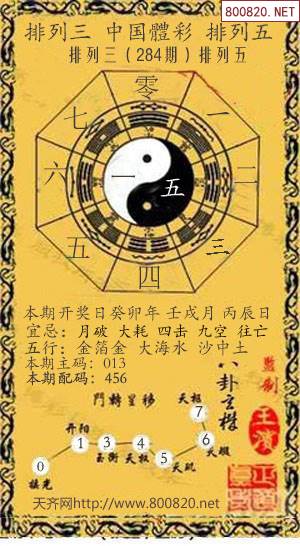 800820.NET
排列三 中国體彩 排列五
排列三(284期)排列五
零
七 一
六 一 五 二
五 三
四
本期开奖日癸卯年 壬戌月 丙辰日
宜忌: 月破 大耗 四击 九空 往亡
五行: 金箔金 大海水 沙中土
本期主码: 013
本期配码: 456
八卦玄機
監制
王濱
門轉星移
天枢
7
开阳
1 3 4
6
玉衡 天权
天璇
5
天玑
0
摇光
天齐网http://www.800820.net